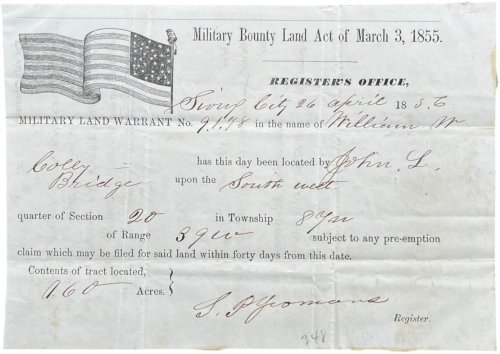 Military Bounty Land Act of March 3, 1855.
REGISTER'S OFFICE,
Sioux City 26 April 1856
MILITARY LAND WARRANT No. 9178 in the name of William W
Colly has this day been located by John L.
Bridge upon the South west
quarter of Section 20 in Township 87 N
of Range 39 W subject to any pre-emption
claim which may be filed for said land within forty days from this date.
Contents of tract located,
160 Acres.
S. P. Yeomans
Register.
348